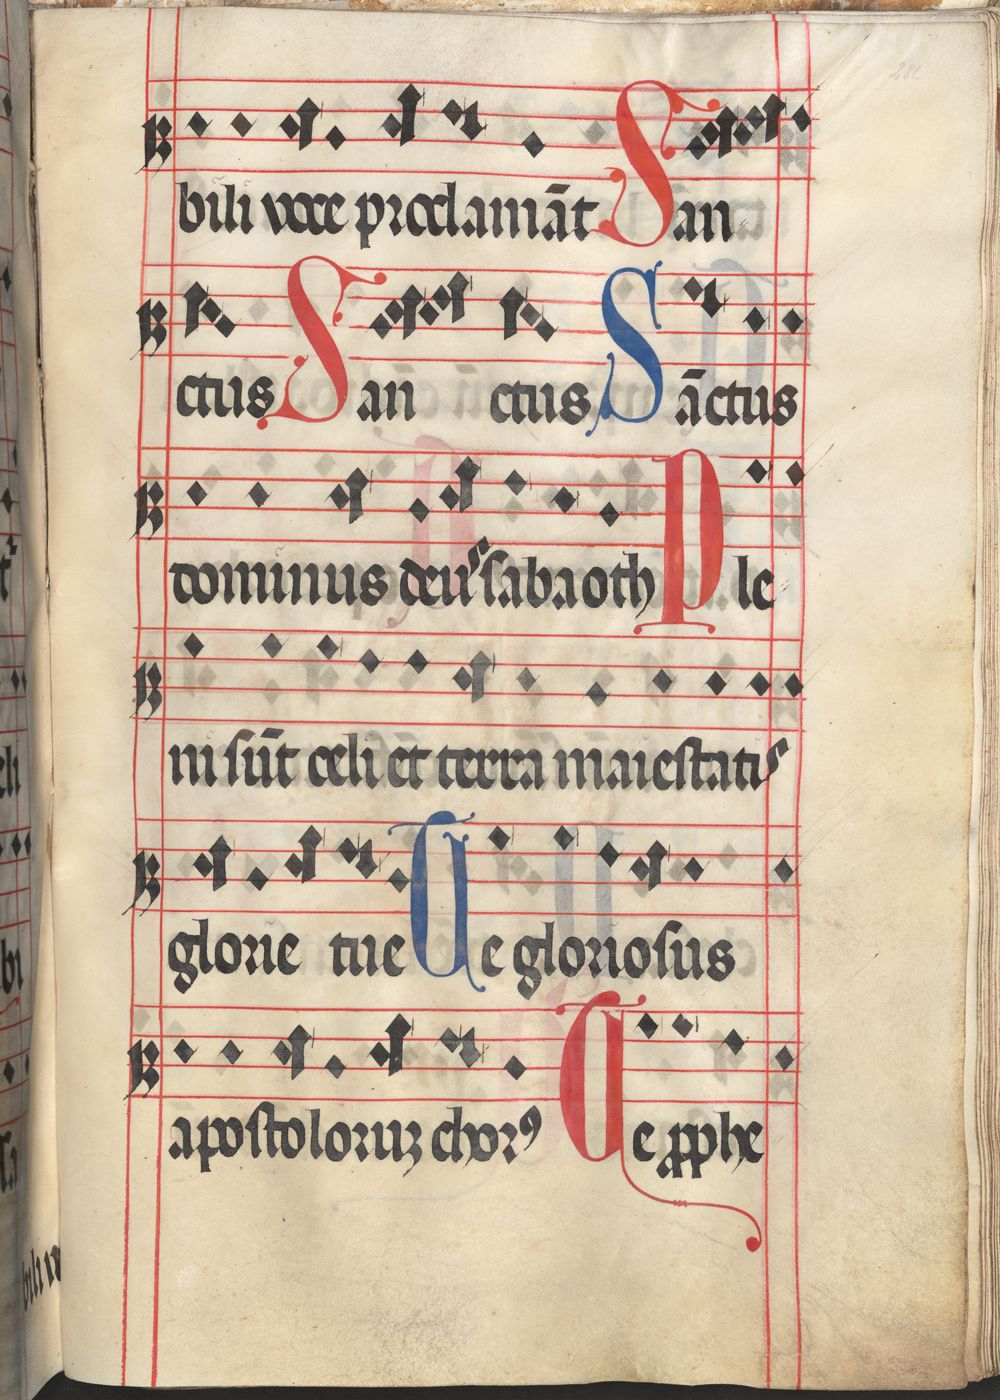 bili voce proclamāt San
ctus San ctus Sāctus
dominus deus sabaoth Ple
ni sūt celi et terra maiestatis
glorie tue Te gloriosus
apostoloruꝫ chorꝰ Te ꝓphe